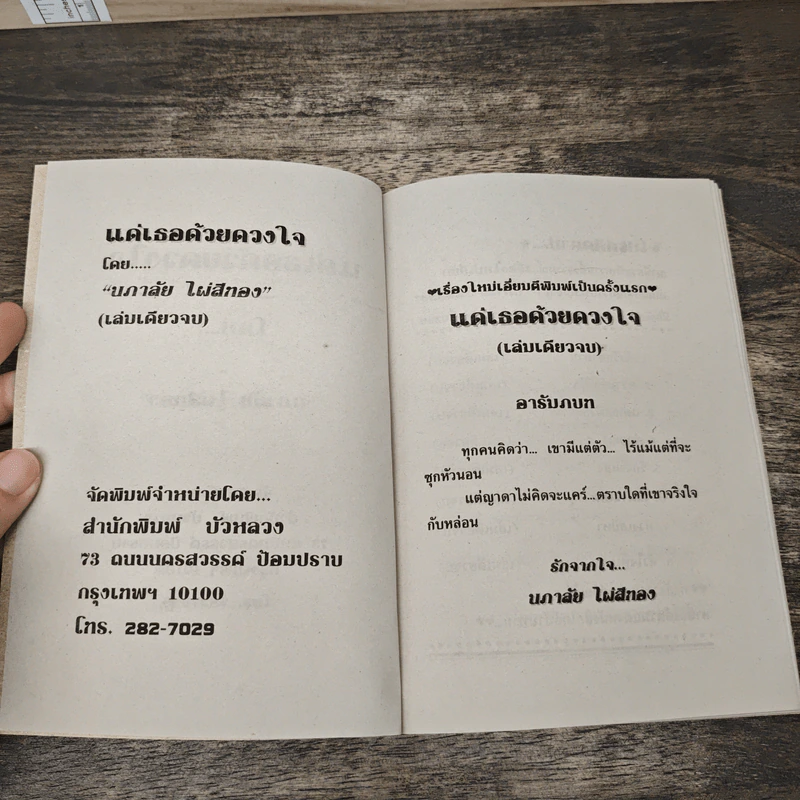 แด่เธอด้วยดวงใจ
โดย.....
“นภาลัย ไผ่สีทอง”
(เล่มเดียวจบ)
จัดพิมพ์จำหน่ายโดย...
สำนักพิมพ์ บัวหลวง
73 ถนนนครสวรรค์ ป้อมปราบ
กรุงเทพฯ 10100
โทร. 282-7029
❤เรื่องใหม่เอี่ยมตีพิมพ์เป็นครั้งแรก❤
แด่เธอด้วยดวงใจ
(เล่มเดียวจบ)
อารัมภบท
ทุกคนคิดว่า... เขามีแต่ตัว... ไร้แม้แต่ที่จะ
ซุกหัวนอน
แต่ญาดาไม่คิดจะแคร์...ตราบใดที่เขาจริงใจ
กับหล่อน
รักจากใจ...
นภาลัย ไผ่สีทอง